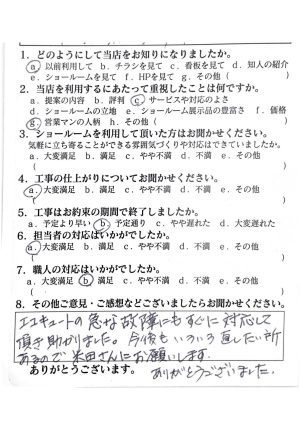 1. どのようにして当店をお知りになりましたか。
a. 以前利用して b. チラシを見て c. 看板を見て d. 知人の紹介
e. ショールームを見て f. HPを見て g. その他 ( )
2. 当店を利用するにあたって重視したことは何ですか。
a. 提案の内容 b. 評判 c. サービスや対応のよさ
d. ショールームの立地 e. ショールーム展示品の豊富さ f. 価格
g. 営業マンの人柄 h. その他 ( )
3. ショールームを利用して頂いた方はお聞かせください。
気軽に立ち寄ることができる雰囲気づくりや対応はできていましたか。
a. 大変満足 b. 満足 c. やや不満 d. 不満 e. その他
( )
4. 工事の仕上がりについてお聞かせください。
a. 大変満足 b. 満足 c. やや不満 d. 不満 e. その他
( )
5. 工事はお約束の期間で終了しましたか。
a. 予定より早い b. 予定通り c. やや遅れた d. 大変遅れた
6. 担当者の対応はいかがでしたか。
a. 大変満足 b. 満足 c. やや不満 d. 不満 e. その他
( )
7. 職人の対応はいかがでしたか。
a. 大変満足 b. 満足 c. やや不満 d. 不満 e. その他
( )
8. その他ご意見・ご感想などございましたらお聞かせください。
エコキュートの急な故障にもすぐに対応して
頂き助かりました。今後もいろいろ直したい所
あるので 米田さんにお願いします。
ありがとうございました。
ありがとうございます。